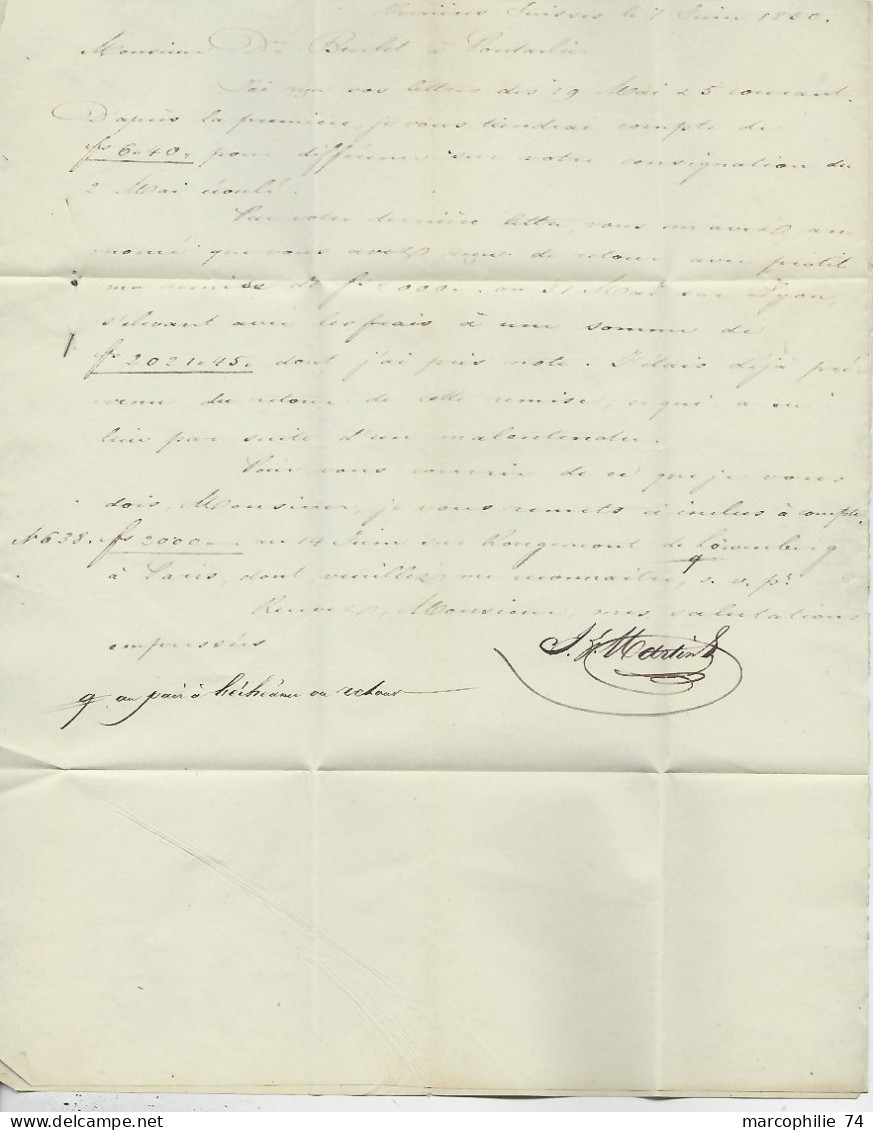 Verrières Suisses le 7 Juin 1860.
Monsieur Dque Burlet à Pontarlier
J'ai reçu vos lettres des 19 Mai & 5 courant.
D'après la première, je vous tiendrai compte de
fs 6.40. pour différence sur votre consignation du
2 Mai écoulé.
Par votre dernière lettre, vous m'avez an
noncé que vous avez reçu de retour avec protêt
ma remise de fs 2000. au 31 Mai sur Lyon,
s'élevant avec les frais à une somme de
fs 2021.45. dont j'ai pris note. J'étais déjà pré
venu du retour de cette remise, ce qui a eu
lieu par suite d'un malentendu.
Pour vous couvrir de ce que je vous
dois, Monsieur, je vous remets ci inclus à compte
No 638. fs 2000. au 14 Juin sur Rougemont de Löwenberg
à Paris, dont veuillez me reconnaître, s. v. p.
Recevez, Monsieur, mes salutations
empressées
au pair à l'échéance ou retour
marcophilie 74